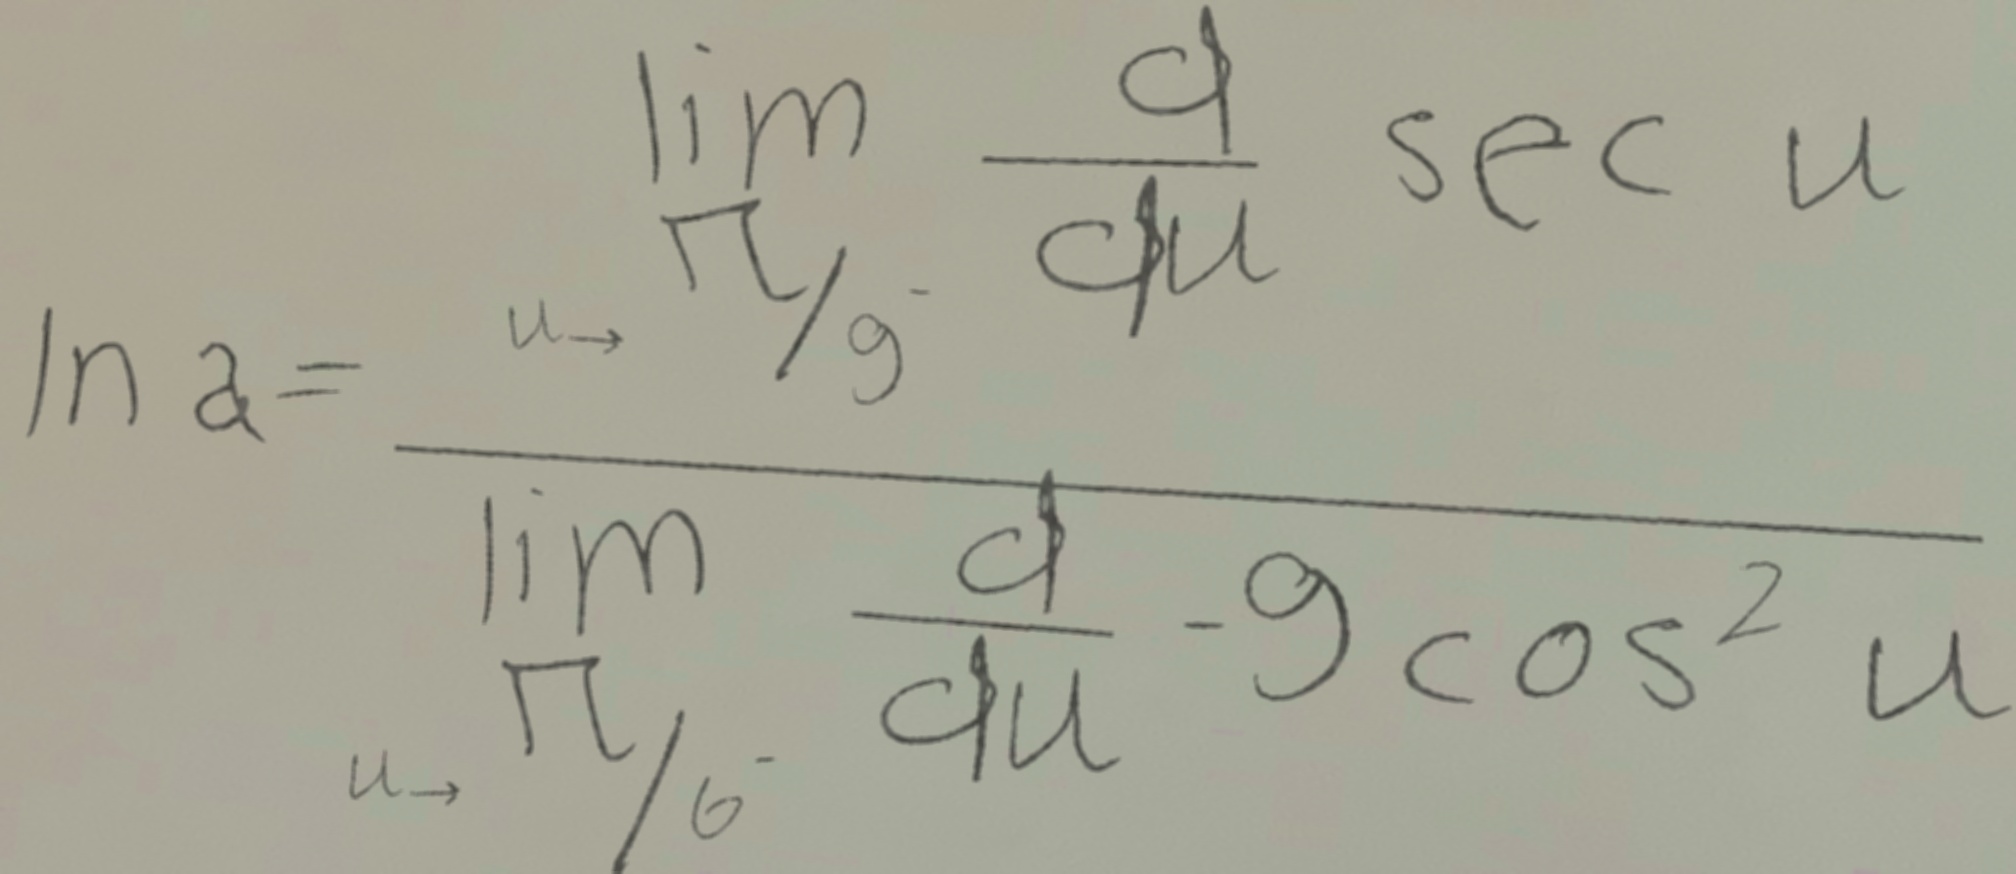 ln a = \frac{\lim_{u \to \pi/9^-} \frac{d}{du} \sec u}{\lim_{u \to \pi/6^-} \frac{d}{du} -9 \cos^2 u}